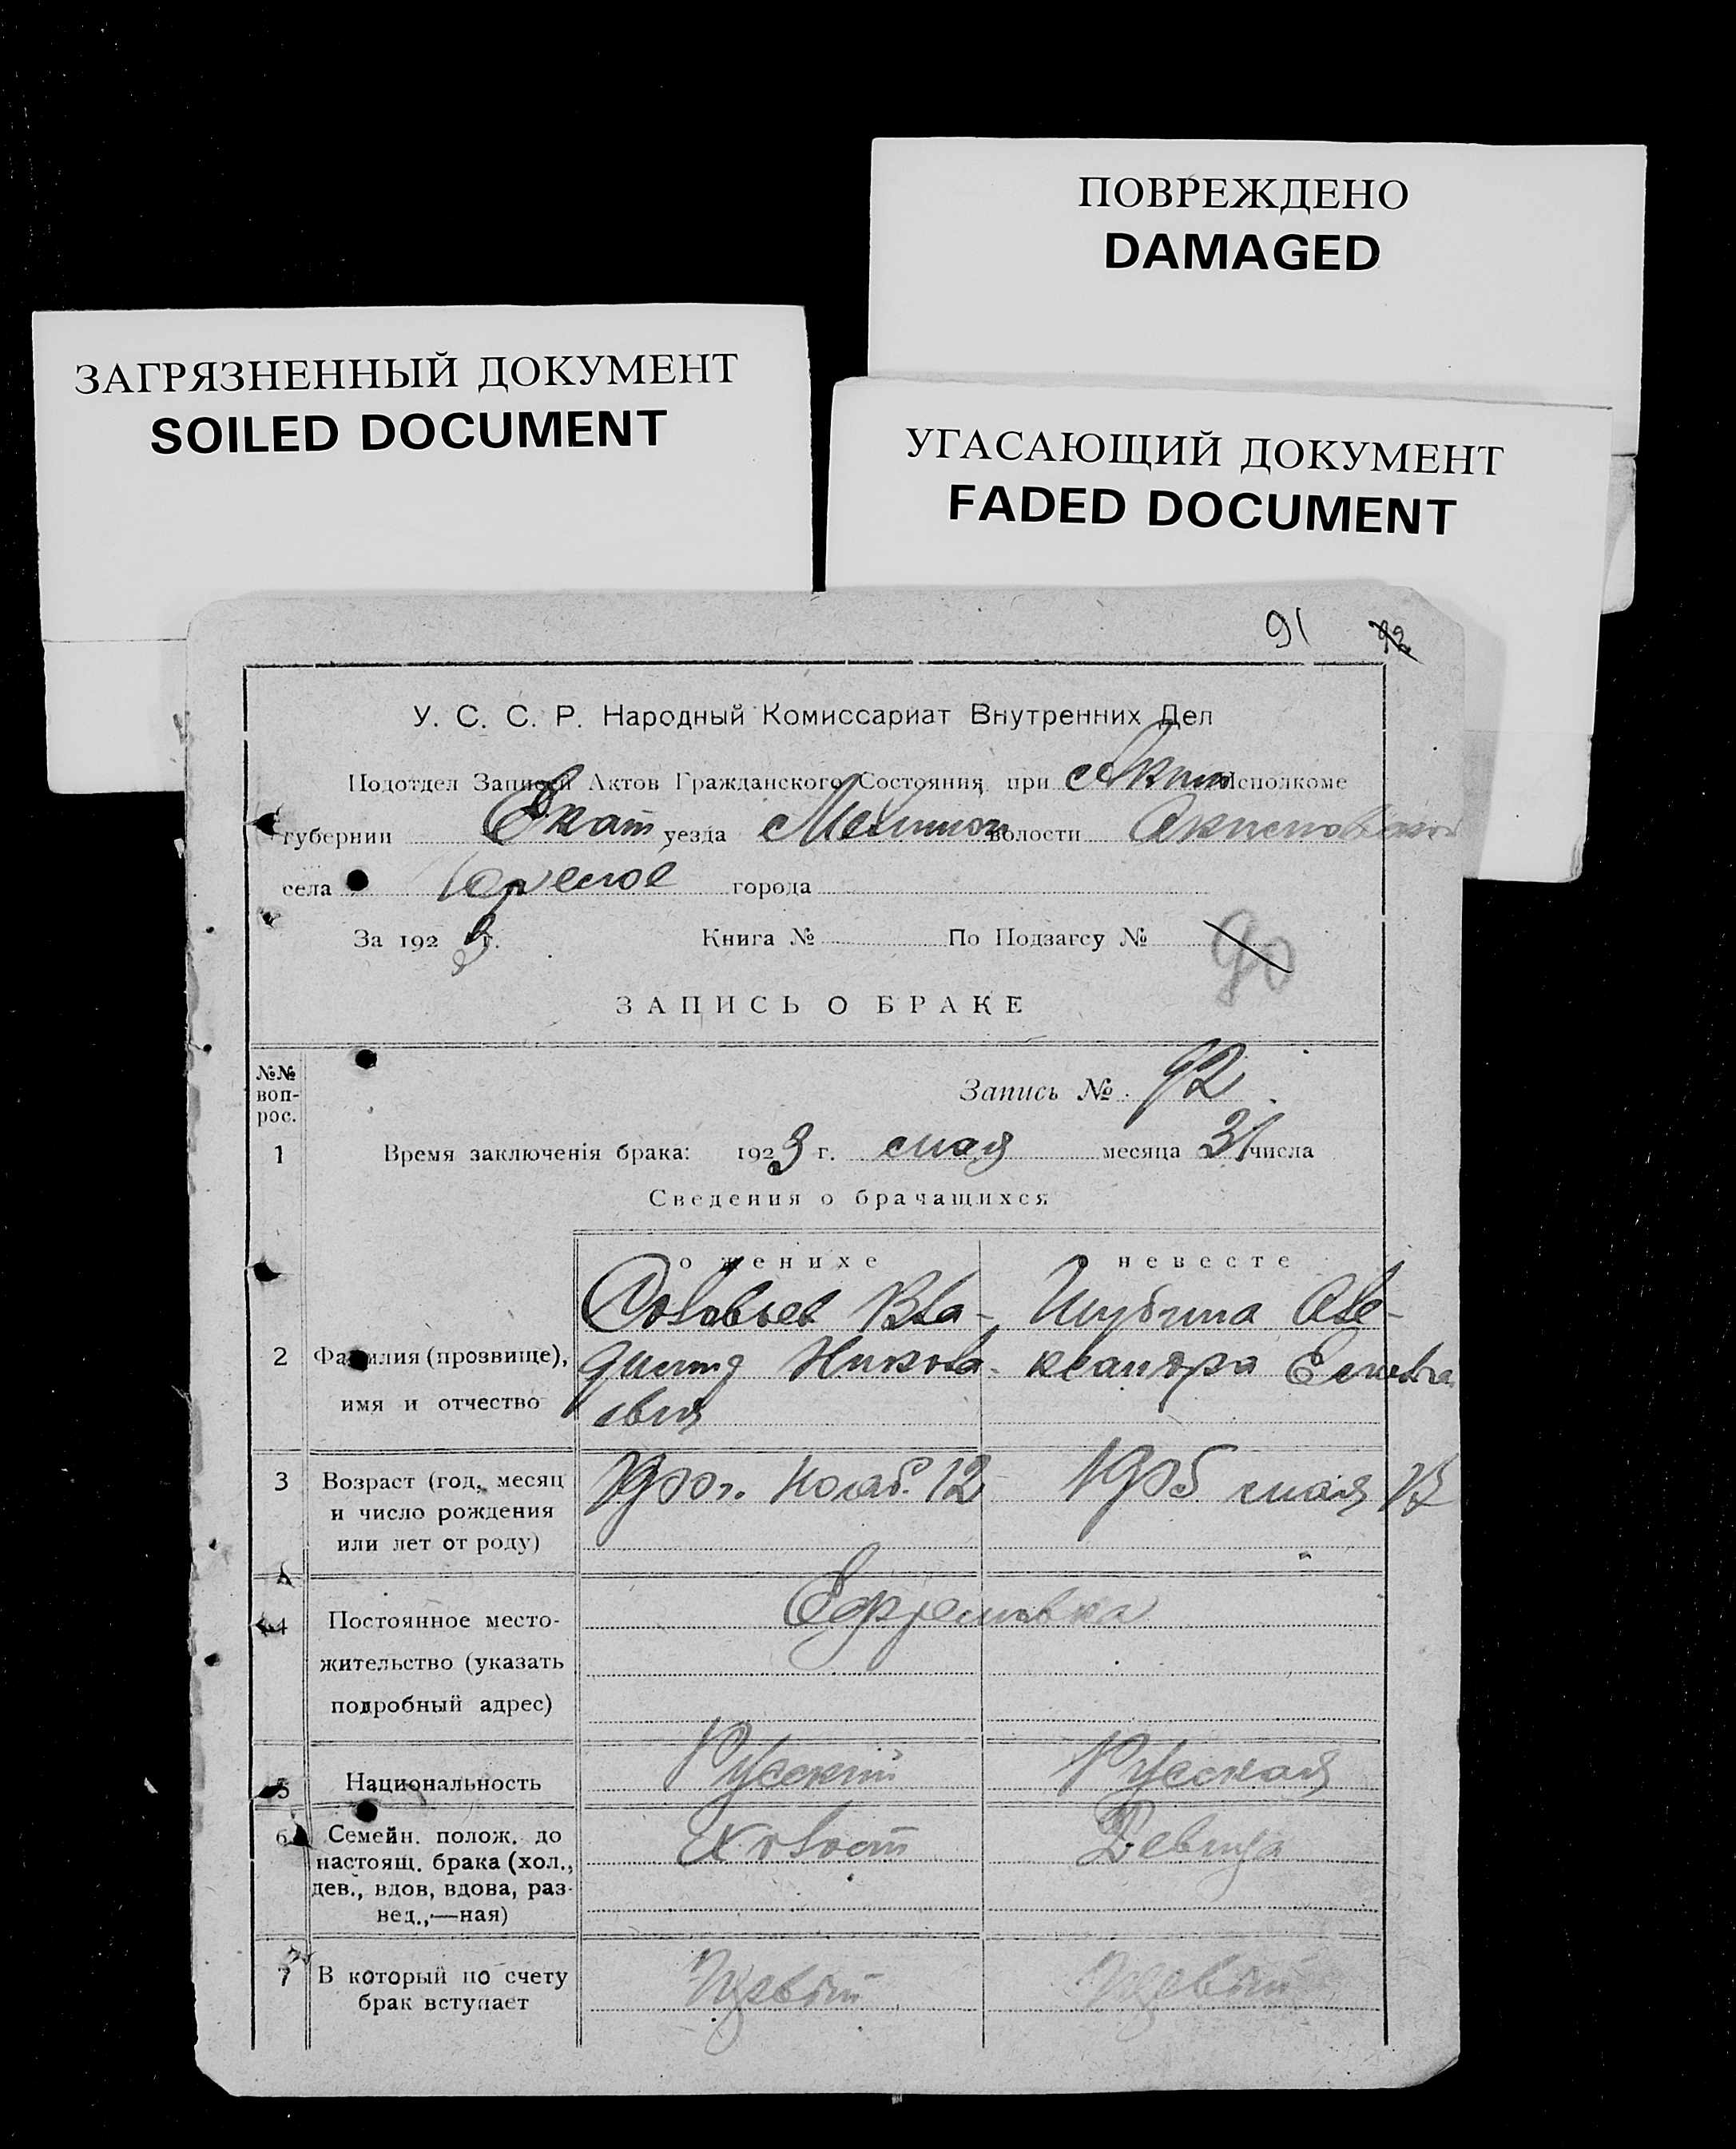 ПОВРЕЖДЕНО
DAMAGED
ЗАГРЯЗНЕННЫЙ ДОКУМЕНТ
SOILED DOCUMENT
УГАСАЮЩИЙ ДОКУМЕНТ
FADED DOCUMENT
91 92
У. С. С. Р. Народный Комиссариат Внутренних Дел
Подотдел Записей Актов Гражданского Состояния, при Исполкоме
губернии Екат уезда волости
села города
За 1923 г. Книга № По Подзагсу № 90
ЗАПИСЬ О БРАКЕ
№№ воп-рос.
Запись № 92
1 Время заключенія брака: 1923 г. мая месяца 31 числа
Сведения о брачащихся
о женихе невесте
2 Фамилия (прозвище), имя и отчество
Соловьев Вла- Шубина Але-
димир Никола- ксандра
евич
3 Возраст (год, месяц и число рождения или лет от роду)
1900 г. Нояб. 12 1905 мая 17
4 Постоянное место-жительство (указать подробный адрес)
Ефремовка
5 Национальность Русский Русская
6 Семейн. полож. до настоящ. брака (хол., дев., вдов, вдова, раз-вед.,—ная)
Холост Девица
7 В который по счету брак вступает
Первый Первый